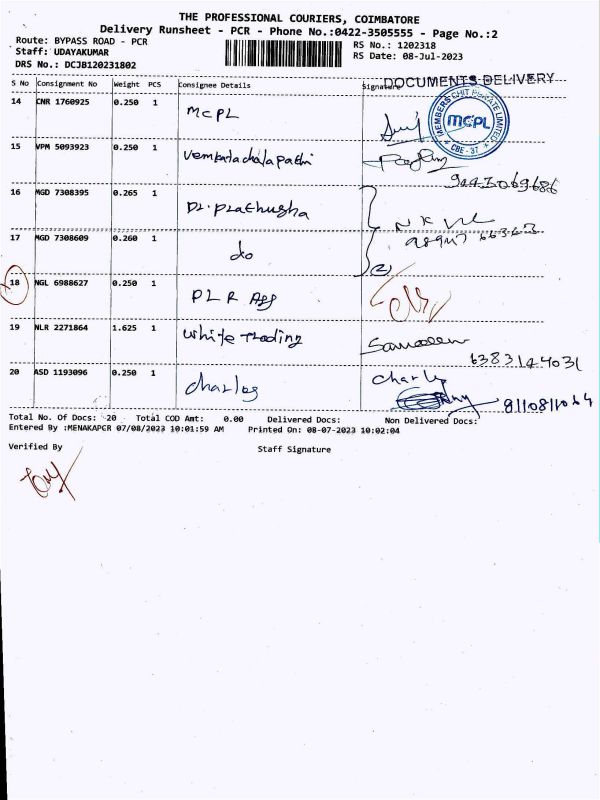 THE PROFESSIONAL COURIERS, COIMBATORE
Delivery Runsheet - PCR - Phone No.:0422-3505555 - Page No.:2
Route: BYPASS ROAD - PCR RS No.: 1202318
Staff: UDAYAKUMAR RS Date: 08-Jul-2023
DRS No.: DCJB120231802
DOCUMENTS DELIVERY
S No Consignment No Weight PCS Consignee Details Signature
14 CNR 1760925 0.250 1 MCPL
MEMBERS CHIT PRIVATE LIMITED
MCPL
* CBE - 37 *
15 VPM 5093923 0.250 1 Venkatachalapathi
16 MGD 7308395 0.265 1 Dr. Prathusha
17 MGD 7308609 0.260 1 do
(2)
18 NGL 6988627 0.250 1 DLR
19 NLR 2271864 1.625 1 White Trading
6383144031
20 ASD 1193096 0.250 1 charles
8110811064
Total No. Of Docs: 20 Total COD Amt: 0.00 Delivered Docs: Non Delivered Docs:
Entered By :MENAKAPCR 07/08/2023 10:01:59 AM Printed On: 08-07-2023 10:02:04
Verified By Staff Signature